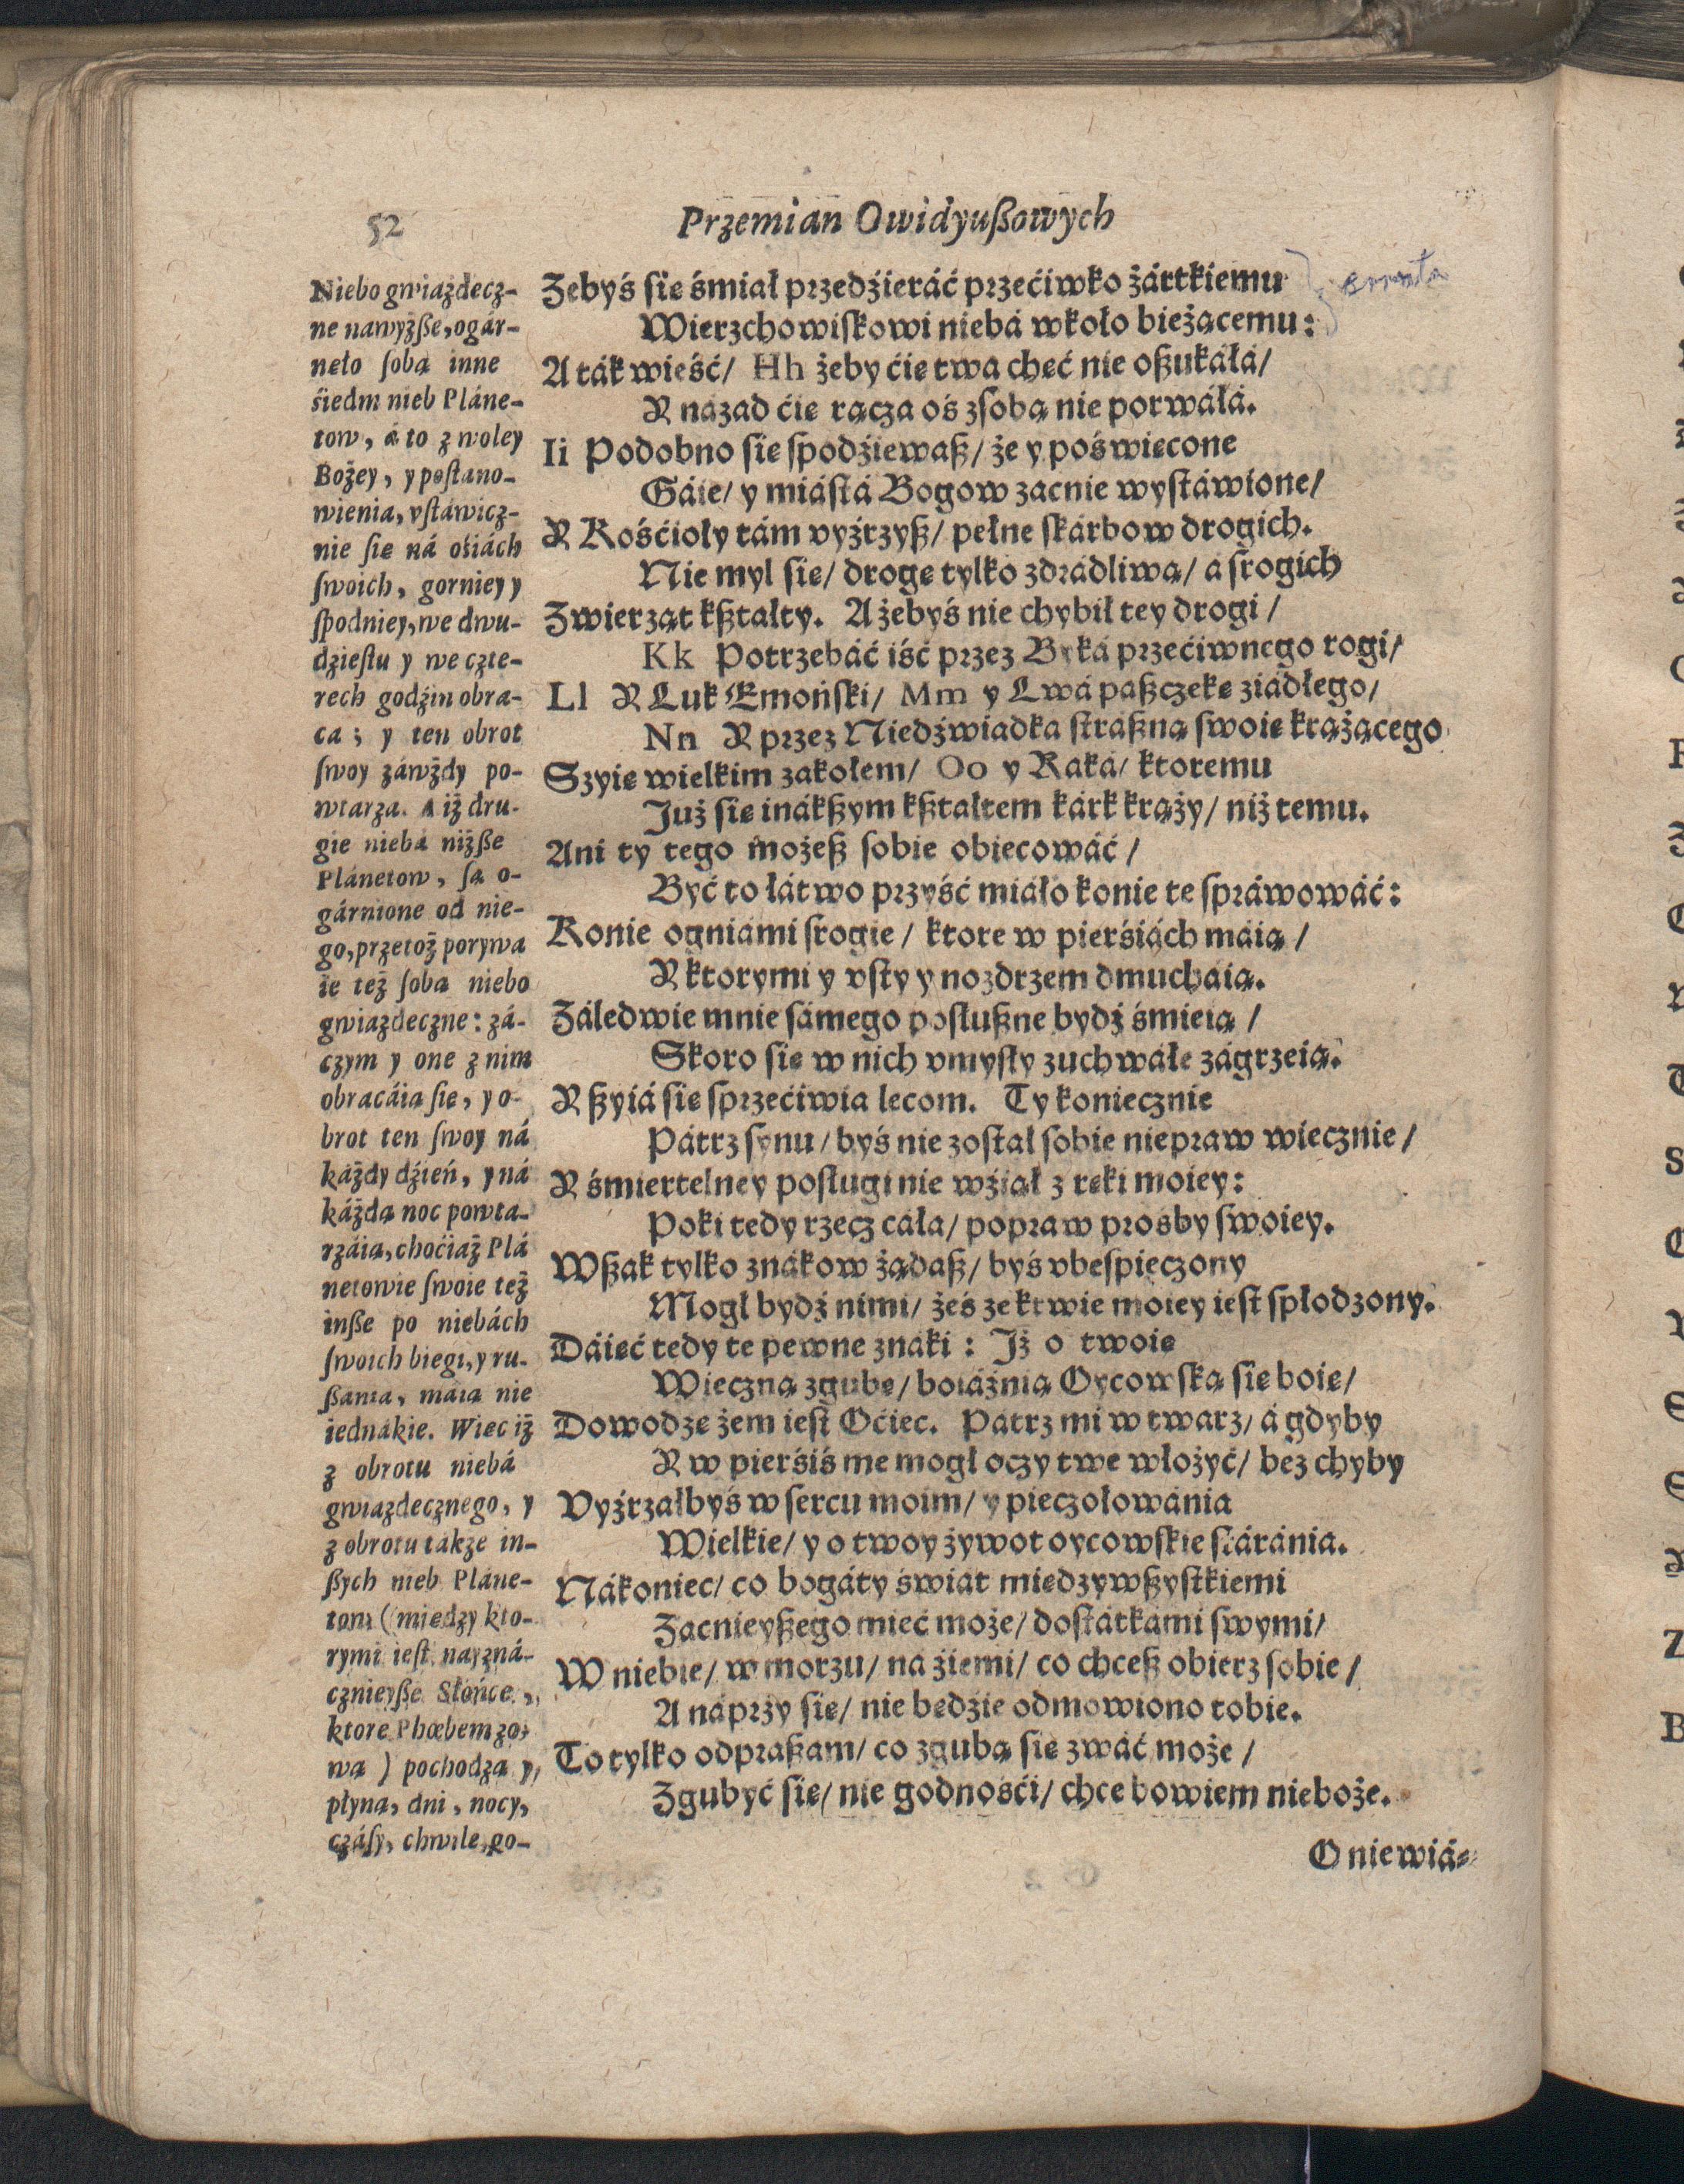 52
Przemian Owidyußowych
Niebo gwiazdecz-
ne nawyżße, ogár-
neło ſobą inne
śiedm nieb Pláne-
tow, á to z woley
Bożey, y poſtano-
wienia, vſtáwicz-
nie ſie ná ośiách
ſwoich, gorniey y
ſpodniey, we dwu-
dzieſtu y we czte-
rech godźin obra-
ca; y ten obrot
ſwoy záwżdy po-
wtarza. A iż dru-
gie niebá niżße
Plánetow, ſą o-
gárnione od nie-
go, przetoż porywa
ie też ſobą niebo
gwiazdeczne: zá-
czym y one z nim
obracáią ſie, y o-
brot ten ſwoy ná
káżdy dźień, y ná
káżdą noc powta-
rzáią, choćiaż Plá
netowie ſwoie też
inße po niebách
ſwoich biegi, y ru-
ßania, máią nie
iednákie. Wiec iż
z obrotu niebá
gwiazdecznego, y
z obrotu tákże in-
ßych nieb Pláne-
tom (miedzy kto-
rymi ieſt nayzná-
cznieyße Słońce,
ktore Phœbem zo-
wą) pochodzą y
płyną, dni, nocy,
czáſy, chwile, po-
Zebyś ſie śmiał przedźieráć przećiwko żártkiemu
errata
Wierzchowiſkowi niebá wkoło bieżącemu:
A ták wieść/ Hh żeby ćie twa chęć nie oßukáłá/
Y názad ćie rącza oś zſobą nie porwáłá.
Ii Podobno ſie ſpodźiewaß/ że y poświęcone
Gáie/ y miáſtá Bogow zacnie wyſtáwione/
Y Kośćioły tám vyźrzyß/ pełne ſkárbow drogich.
Nie myl ſie/ drogę tylko zdrádliwą/ á ſrogich
Zwierząt kßtałty. A żebyś nie chybił tey drogi/
Kk Potrzebáć iść przez Byká przećiwnego rogi/
Ll Y Luk Emoński/ Mm y Lwá paßczekę ziádłego/
Nn Y przez Niedźwiadka ſtraßną ſwoię krążącego
Szyię wielkim zakołem/ Oo y Raká/ ktoremu
Już ſie inákßym kßtałtem kárk krąży/ niż temu.
Ani ty tego możeß ſobie obiecowáć/
Być to łátwo przyść miáło konie te ſpráwowáć:
Konie ogniámi ſrogie/ ktore w pierśiách máią/
Y ktorymi y vſty y nozdrzem dmucháią.
Záledwie mnie ſámego poſłußne bydź śmieią/
Skoro ſie w nich vmyſły zuchwáłe zágrzeią.
Y ßyiá ſie ſprzećiwia lecom. Ty koniecznie
Pátrz ſynu/ byś nie został ſobie niepraw wiecznie/
Y śmiertelney poſługi nie wźiął z ręki moiey:
Poki tedy rzecz cáła/ popraw prośby ſwoiey.
Wßak tylko znákow żądaß/ byś vbeſpieczony
Mogł bydź nimi/ żeś ze krwie moiey ieſt ſpłodzony.
Dáięć tedy te pewne znáki: Iż o twoię
Wieczną zgubę/ boiáźnią Oycowſką ſie boię/
Dowodzę żem ieſt Oćiec. Pátrz mi w twarz/ á gdyby
Y w pierśiś me mogł oczy twe włożyć/ bez chyby
Vyźrzałbyś w ſercu moim/ y pieczołowánia
Wielkie/ y o twoy żywot oycowſkie ſtáránia.
Nákoniec/ co bogáty świát miedzy wßyſtkiemi
Zacnieyßego mieć może/ doſtátkámi ſwymi/
W niebie/ w morzu/ ná źiemi/ co chceß obierz ſobie/
A náprzy ſie/ nie będźie odmowiono tobie.
To tylko odpraßam/ co zgubą ſie zwáć może/
Zgubyć ſie/ nie godnośći/ chce bowiem nieboże.
O niewiá-